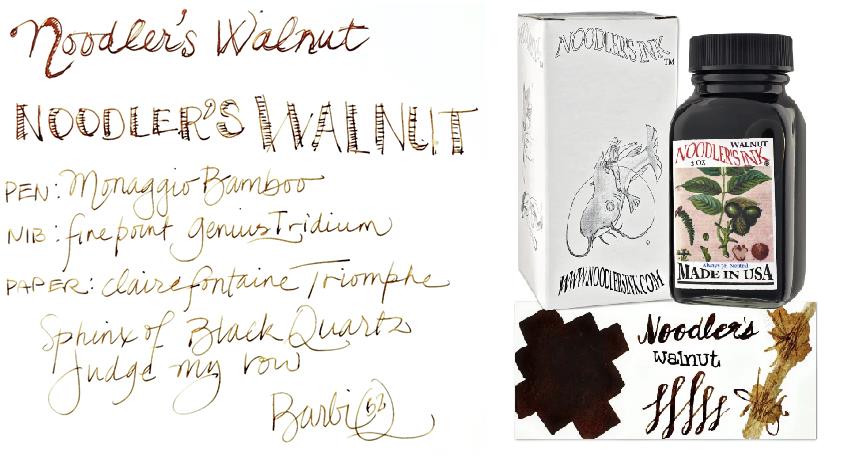 Noodler's Walnut
NOODLER'S WALNUT
PEN: Monaggio Bamboo
NIB: fine point genius Iridium
PAPER: Clairefontaine Triomphe
Sphinx of Black Quartz
Judge my vow
Barbi
NOODLER'S INK
TM
WWW.NOODLERSINK.COM
WALNUT
NOODLER'S INK
3 OZ
MADE IN USA
Noodler's
Walnut